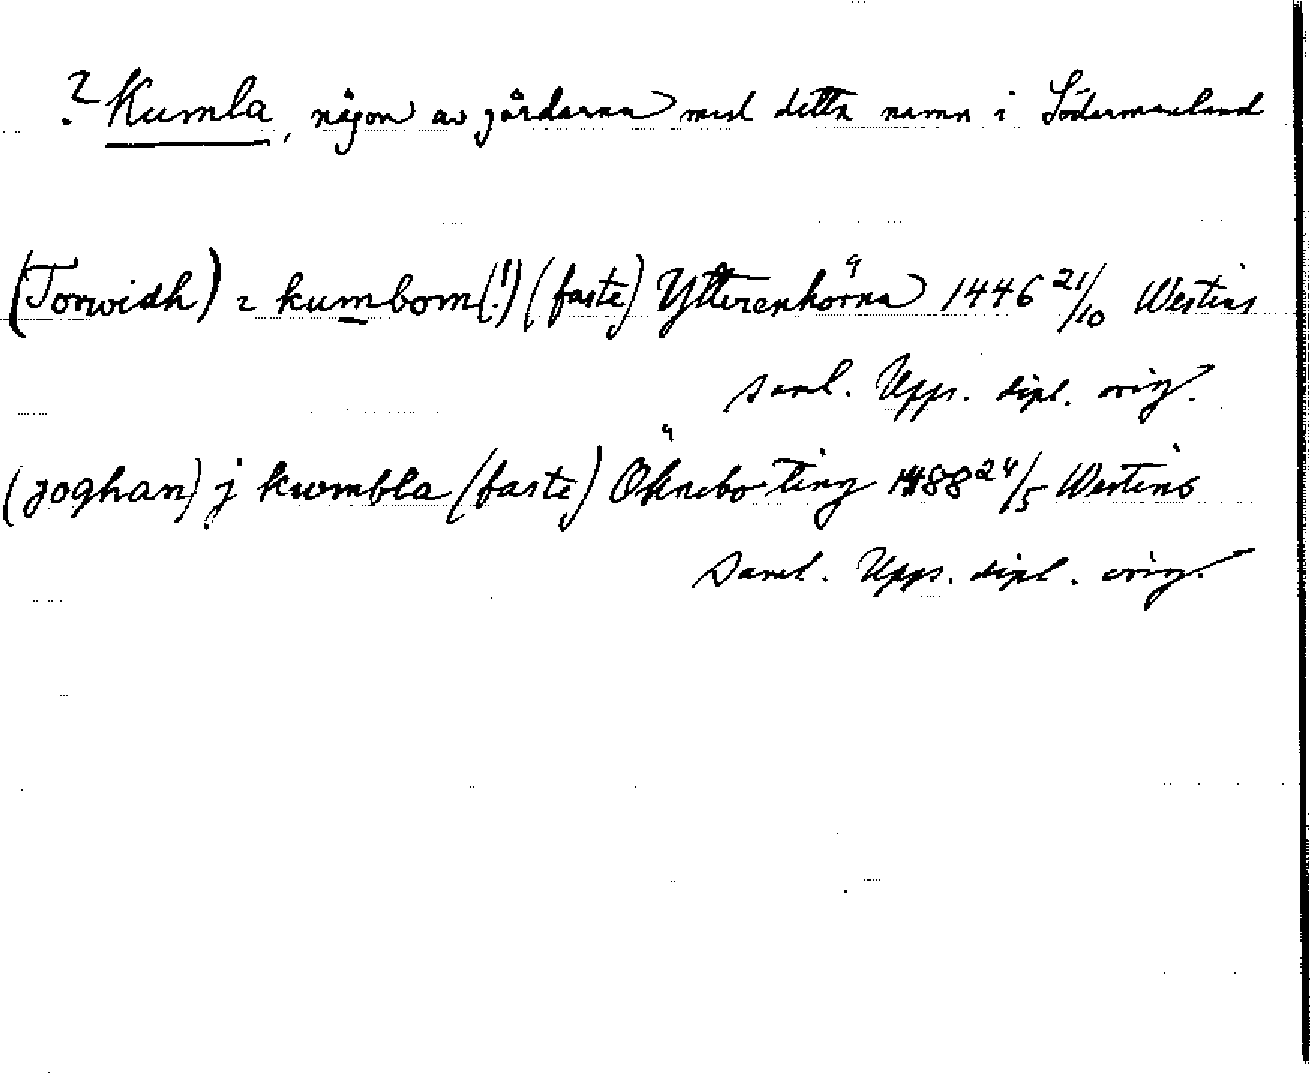 ? Kumla, någon av gårdarna med detta namn i Södermanland
(Torwidh) z kumbom (!) (faste) Ytterenhörna 1446 21/10 Westins
saml. Upps. dipl. orig.
(joghan) j kwmbla (faste) Öknebo ting 1488 24/5 Westins
saml. Upps. dipl. orig.